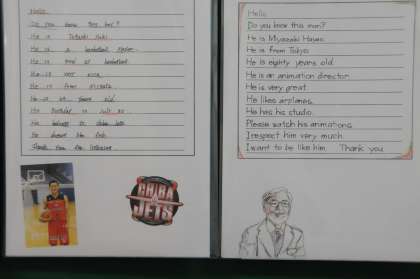 Hello.
Do you know this boy?
He is Yuki
He is a basketball player.
He is good at basketball.
He is very nice.
He is from
He is years old.
His birthday is July
He belongs to chiba Jets.
He doesn't like
Thank you for listening.
CHIBA
JETS
Hello.
Do you know this man?
He is Miyazaki Hayao.
He is from Tokyo.
He is eighty years old.
He is an animation director.
He is very great.
He likes airplanes.
He has his studio.
Please watch his animations.
I respect him very much.
I want to be like him. Thank you.